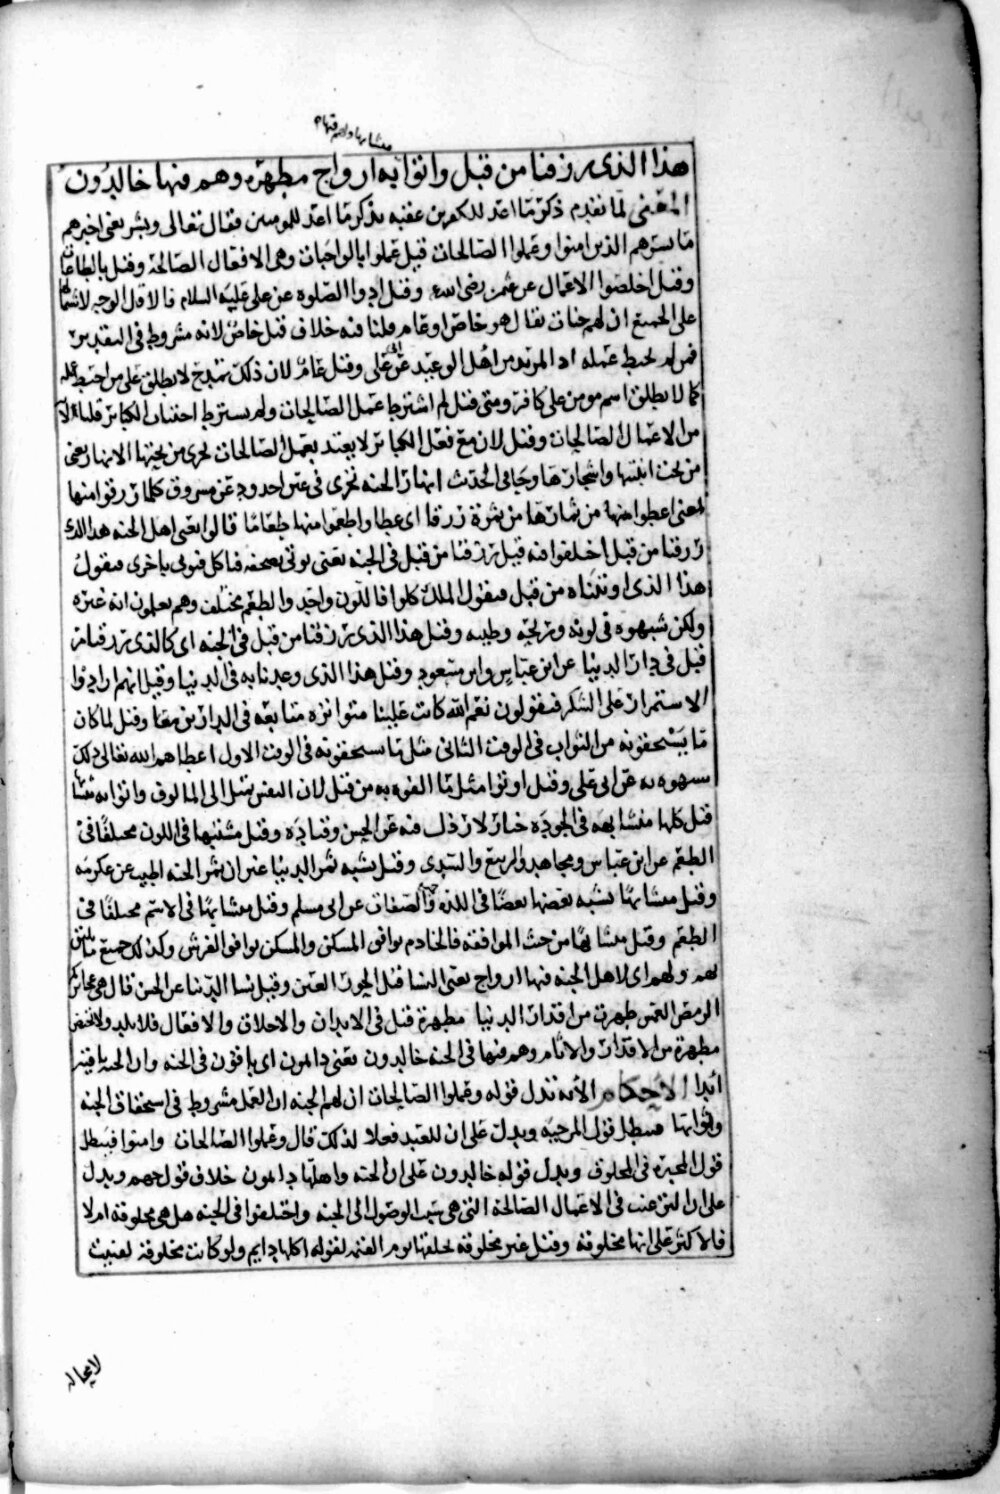 متشابها ولهم فيها
هذا الذي رزقنا من قبل واتوا به ازواج مطهرة وهم فيها خالدون
المعنى لما تقدم ذكر ما اعد للكفرين عقبه بذكر ما اعد للمومنين فقال تعالى وبشر يعني اخبرهم
ما يسرهم الذين امنوا وعملوا الصالحات قيل عملوا بالواجبات وهي الافعال الصالحة وقيل بالطاعات
وقيل اخلصوا الاعمال عن عثمن رضي الله وقيل ادوا الصلوة عن علي عليه السلام فالاول الوجه لاشتماله
على الجميع ان لهم جنات يقال هو خاص او عام قلنا فيه خلاف قيل خاص لانه مشروط في التقدير
فمن لم يحبط عمله اد المرتد من اهل الوعيد عن ابي علي وقيل عام لان ذلك تمدح لا يطلق على من احبط عمله
كما لا يطلق اسم مومن على كافر ومتى قيل لم اشترط عمل الصالحات ولم يشترط اجتناب الكبائر قلنا
من الاعمال الصالحات وقيل لان مع فعل الكبائر لا يعتد بعمل الصالحات تجري من تحتها الانهار يعني
من تحت ابنيتها واشجارها وجا في الحديث انهار الجنه تجري في غير اخدود عن مسروق كلما رزقوا منها
المعنى اعطوا منها من ثمارها من ثمرة رزقا اي عطا واطعموا منها طعاما قالوا يعني اهل الجنه هذا الذي
رزقنا من قبل اختلفوا فيه قيل رزقنا من قبل في الجنه يعني يوتى بصحفه فياكل فيوتى باخرى فيقول
هذا الذي اوتيناه من قبل فيقول الملك كلوا فاللون واحد والطعم مختلف وهم يعلمون انه غيره
ولكن شبهوه في لونه وريحه وطيبه وقيل هذا الذي رزقنا من قبل في الجنه اي كالذي رزقنا من
قبل في دار الدنيا عن ابن عباس وابن مسعود وقيل هذا الذي وعدنا به في الدنيا وقيل انهم ارادوا
الاستمرار على الشكر فيقولون نعم الله كانت علينا متواترة متتابعه في الدارين معا وقيل لما كان
ما يستحقونه من الثواب في الوقت الثاني مثل ما يستحقونه في الوقت الاول اعطاهم الله تعالى ذلك
عن ابي علي وقيل اوتوا مثل ما الفوه به من قبل لان النفس تميل الى المالوف واتوا به متشابها
قيل كلها متشابهه في الجوده خيار لا رذل فيه عن الحسن وقتاده وقيل مشتبها في اللون مختلفا في
الطعم عن ابن عباس ومجاهد والربيع والسدي وقيل يشبه ثمر الدنيا غير ان ثمر الجنه اطيب عن عكرمه
وقيل متشابها يشبه بعضها بعضا في اللذه والصفات عن ابي مسلم وقيل متشابها في الاسم مختلفا في
الطعم وقيل متشابها من حيث الموافقه فالخادم يوافق المسكن والمسكن يوافق الفرش وكذلك جميع ما يليق
بهم ولهم اي لاهل الجنه فيها ازواج يعني النسا قيل الحور العين وقيل نسا الدنيا عن الحسن قال هي عجائزكم
الرمص العمش طهرن من اقذار الدنيا مطهرة قيل في الابدان والاخلاق والافعال فلا يلد ولا يحض
مطهرة من الاقذار والاثام وهم فيها في الجنه خالدون يعني دايمون اي باقون في الجنه وان الجنه باقيه
ابدا الاحكام الاية تدل قوله وعملوا الصالحات ان لهم الجنه ان العمل مشروط في استحقاق الجنه
وثوابها فيبطل قول المرجيه ويدل على ان للعبد فعلا لذلك قال وعملوا الصالحات وامنوا فيبطل
قول المجبره في المخلوق ويدل قوله خالدون على ان الجنه واهلها دايمون خلاف قول جهم ويدل
على الترغيب في الاعمال الصالحة التي هي سبب الوصول الى الجنه واختلفوا في الجنه هل هي مخلوقة ام لا
فالاكثر على انها مخلوقة وقيل غير مخلوقه يخلقها يوم القيمه لقوله اكلها دايم ولو كانت مخلوقة لفنيت
لا محاله